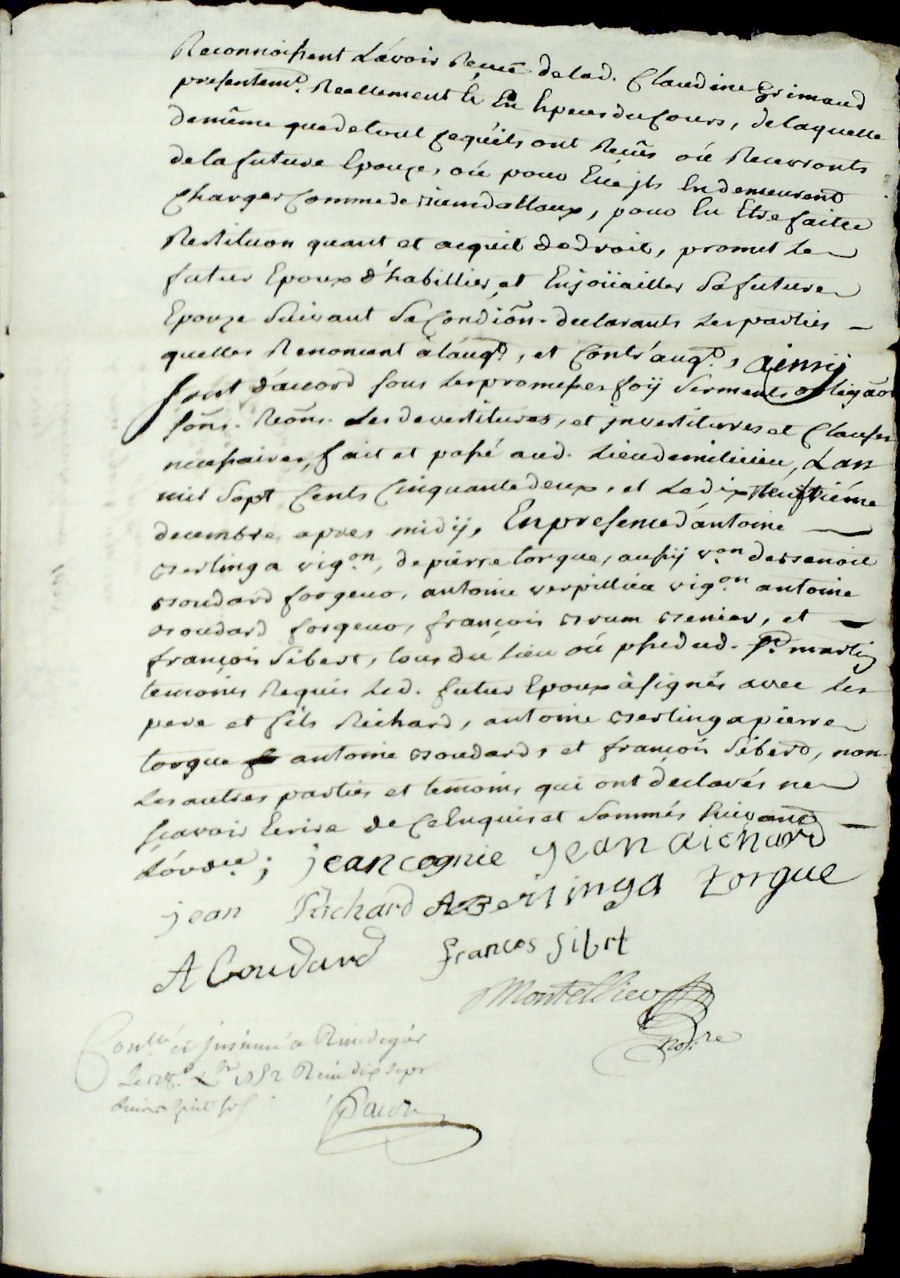 Reconnoissent Lavoir Reçeue delad. Claudine Grimaud
presentemt. Reellement & En Especes du Cours, delaquelle
demême que de tout ce qu'ils ont Reçeus où Recevronts
de la future Epouze, où pour Elle jls En demeurent
Charger Comme de, pour En Etre faitte
Restitution quant et acquil de droit, promet le
futur Epoux d'habillier, et Enjoüailler Sa future
Epouze Suivant Sa Condiôn. declarants Les parties
quelles Renoncent à l'augt., et Contr'augt., ainsy
Sont d'accord Sous Les promesses foy Serments obligâôn
Sôns. Reôns. Les devestitures, et jnvestitures et Clauses
necessaires, fait et passé aud. Lieu de, L'an
mil Sept Cents Cinquante deux, et Ledix
decembre apres midij, En presence d'antoine
Berlinga vigon, de pierre torgue, aussy von de benoit
Coudard forgeur, antoine verpillieu vigon antoine
Coudard forgeur, françois, et
françois Sibert, tous du Lieu où psse dud. St. martin
temoins Requis Led. futur Epoux à signés avec Les
pere et fils Richard, antoine Berlinga pierre
torgue antoine Coudard, et françois Siberd, non
Les autres parties et temoins qui ont declarés ne
sçavoir Ecrire de Ce Enquis et Sommés Suivant
L'ordce.; jean cognie jean Richard
jean Richard ABerlinga torgue
A Coudard frances sibrt
Montellieu
Nore
Conllé et jnsinué a Rivedegier
Le Xbre 1752 Receu dix sept
Livres huit sols